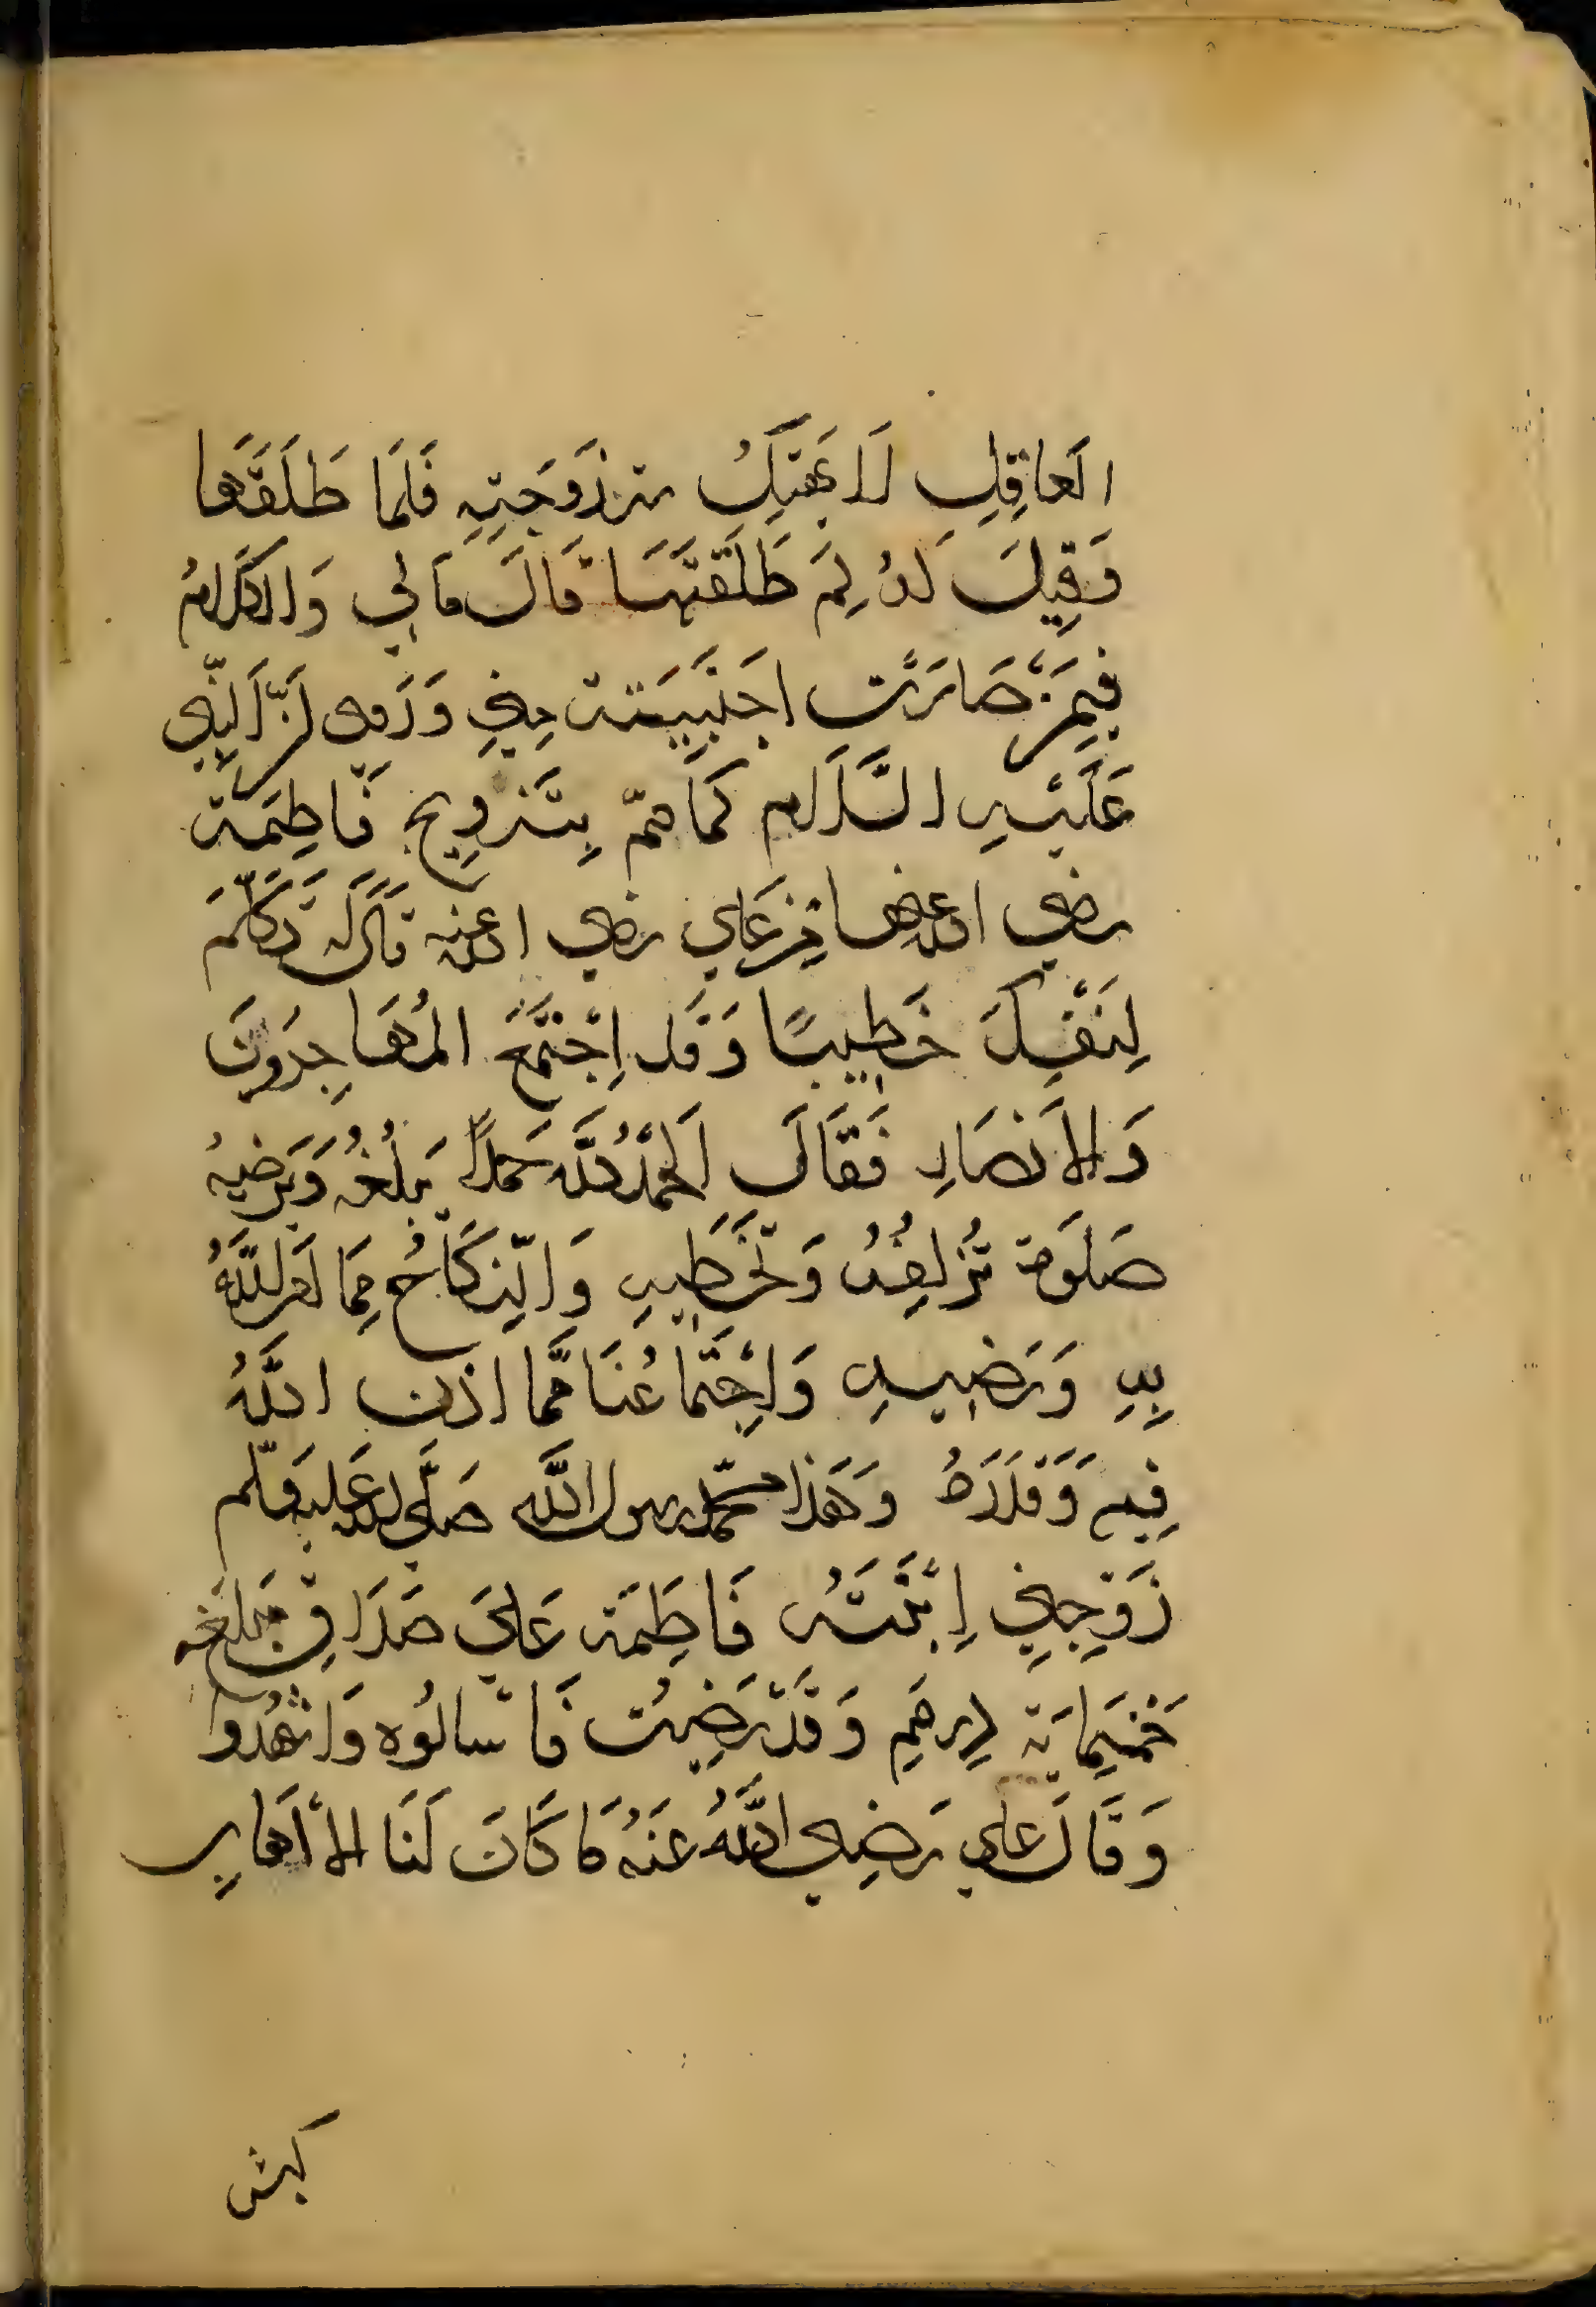 العاقِلِ لَا يَهْتِكُ سترزَوجَتِهِ فَلَمَا طَلَقَها
وَقِيلَ لَهُ لِمَ طَلَقْتَهَا قَالَ مَالي وَالكَلَامُ
فِيمَنْ صَارَت اجَنَبِيَة مِنِي وَرَوي اَنَّ اَلنّبِي
عَلَيْهِ السَّلَام كَمَا هَمّ بِتَزوِيج فَاطِمَة
رضي الله عنها مِن عَلي رضي الله عنه قَالَ تَكَلّمَ
لِنَفْسِكَ خَطِيبًا وَقَد اِجْتَمَعَ المُهَاجِرُونَ
وَالاَنصَارِ فَقَالَ اَلحَمْدُ للَّه حَمداً يَبلُغُه وَيَرضيهُ
صَلَوة تُزلِفُهُ وَتُحظِيهِ وَالنِّكَاحُ مِمَا اَمَر اللَّهُ
بِهِ وَرَضِيهِ وَاِجْتِمَاعُنَا مِمَّا اذن اللَّهُ
فِيه وَقَدَرَهُ وَهَذا محمّد رسول اللَّه صَلَّى الله عَليه وسلّم
زَوّجِنِي اِبْنَتَهُ فَاطِمَة عَلَيَ صَدَاقٍ مبلَغه
خَمْسِمايَة دِرهَمِ وَقَدْ رَضِيتُ فَاسْالُوه وَاشْهُدُوا
وَقَالَ علي رَضِي اللَّهُ عَنَهُ مَا كَانَ لَنَا الاَ اَهَابِ
كبش